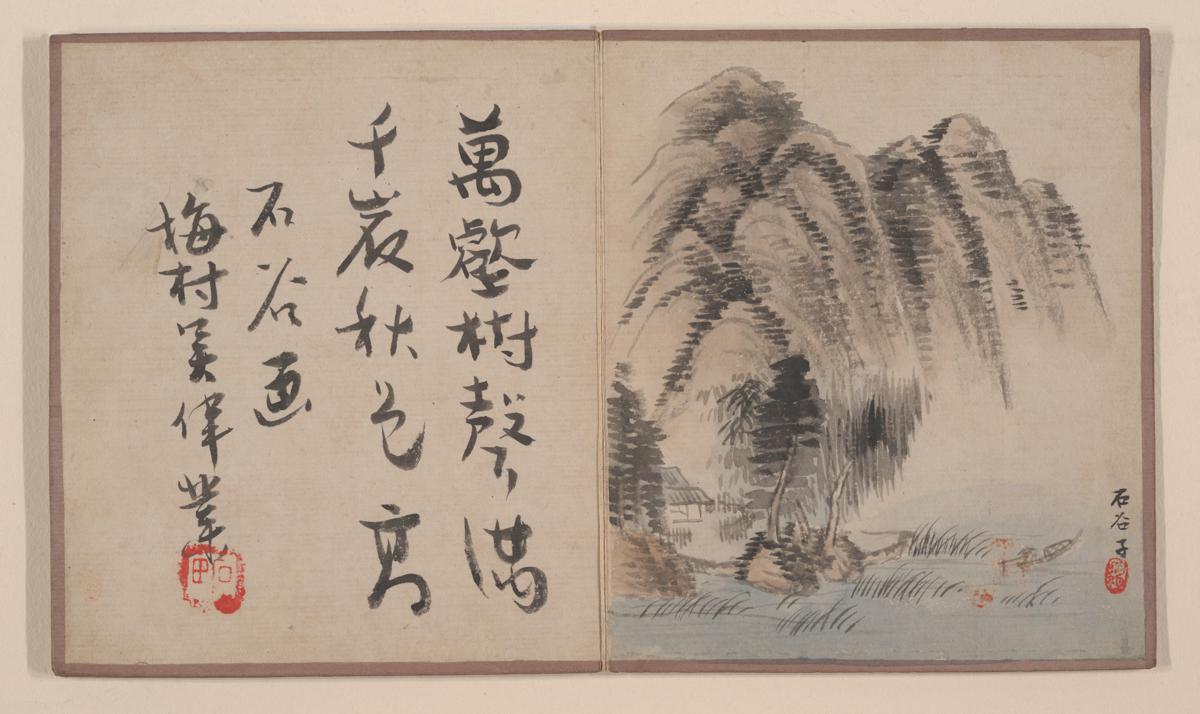 萬壑樹聲滿
千巖秋色高
石谷画
梅村吳偉業
石田
石谷子